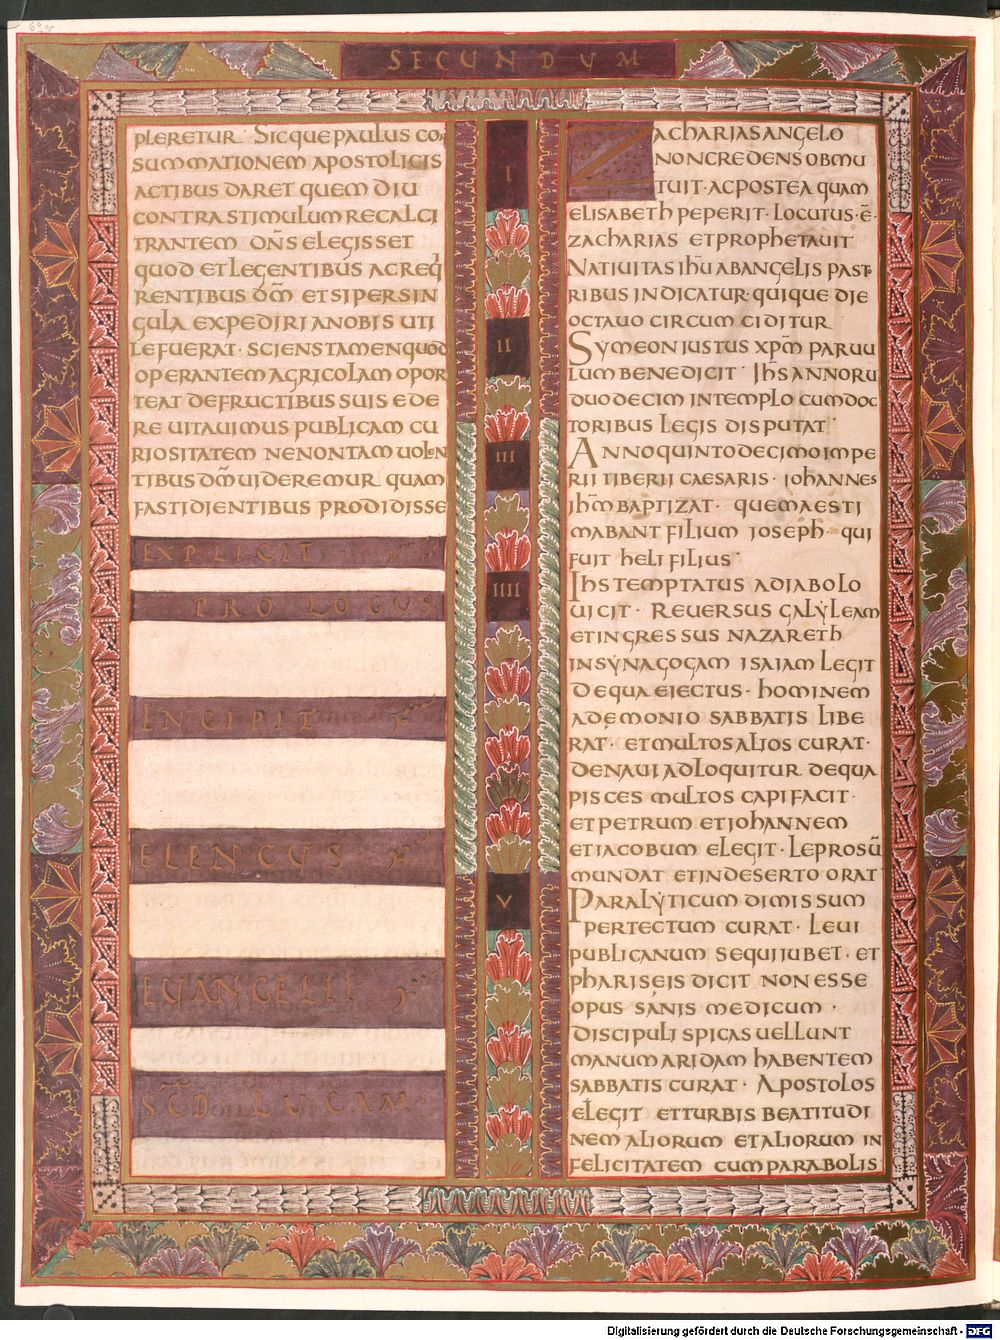 63v
SECUNDUM
PLERETUR · SICQUE PAULUS CO̅
SUMMATIONEM APOSTOLICIS
ACTIBUS DARET QUEM DIU
CONTRA STIMULUM RECALCI
TRANTEM DN̅S ELEGISSET
QUOD ET LEGENTIBUS AC REQ
RENTIBUS DM̅ ET SI PER SIN
GULA EXPEDIRI A NOBIS UTI
LE FUERAT · SCIENS TAMEN QUOD
OPERANTEM AGRICOLAM OPOR
TEAT DE FRUCTIBUS SUIS EDE
RE UITAUIMUS PUBLICAM CU
RIOSITATEM NE NON TAM UOLEN
TIBUS DM̅ UIDEREMUR QUAM
FASTIDIENTIBUS PRODIDISSE
EXPLICIT
PROLOGUS
INCIPIT
ELENCUS
EUANGELII
SCD̅ LUCAM ·
I
ZACHARIAS ANGELO
NON CREDENS OBMU
TUIT · AC POSTEA QUAM
ELISABETH PEPERIT · LOCUTUS · E̅ ·
ZACHARIAS ET PROPHETAUIT
II
NATIUITAS IHU̅ AB ANGELIS PAST
RIBUS INDICATUR QUIQUE DIE
OCTAUO CIRCUMCIDITUR
SYMEON IUSTUS XPM̅ PARUU
LUM BENEDICIT · IHS̅ ANNORU
DUODECIM IN TEMPLO CUM DOC
TORIBUS LEGIS DISPUTAT
III
ANNO QUINTO DECIMO IMPE
RII TIBERII CAESARIS · IOHANNES
IHM̅ BAPTIZAT · QUEM AESTI
MABANT FILIUM IOSEPH · QUI
FUIT HELI FILIUS
IIII
IHS TEMPTATUS A DIABOLO
UICIT · REUERSUS GALYLEAM
ET INGRESSUS NAZARETH
IN SYNAGOGAM ISAIAM LEGIT
DE QUA EIECTUS · HOMINEM
A DEMONIO SABBATIS LIBE
RAT · ET MULTOS ALIOS CURAT ·
DE NAUI ADLOQUITUR DE QUA
PISCES MULTOS CAPI FACIT ·
ET PETRUM ET IOHANNEM
ET IACOBUM ELEGIT · LEPROSU̅
MUNDAT ET IN DESERTO ORAT
V
PARALYTICUM DIMISSUM
PERTECTUM CURAT · LEUI
PUBLICANUM SEQUI IUBET · ET
PHARISEIS DICIT NON ESSE
OPUS SANIS MEDICUM ·
DISCIPULI SPICAS UELLUNT
MANUM ARIDAM HABENTEM
SABBATIS CURAT · APOSTOLOS
ELEGIT ET TURBIS BEATITUDI
NEM ALIORUM ET ALIORUM IN
FELICITATEM CUM PARABOLIS
Digitalisierung gefördert durch die Deutsche Forschungsgemeinschaft - DFG